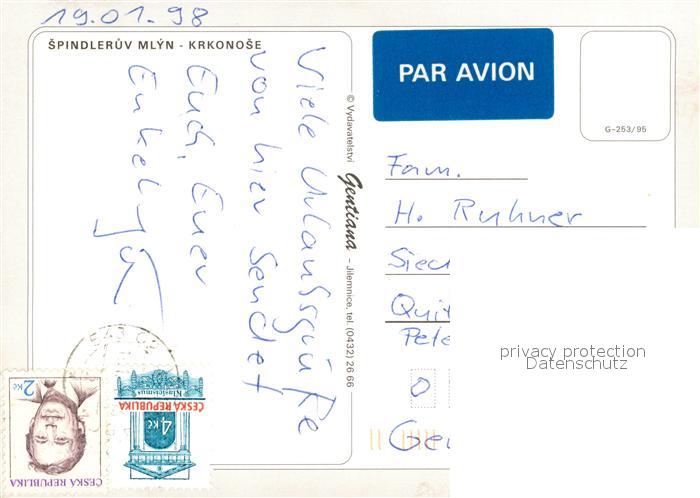 19.01.98
ŠPINDLERŮV MLÝN - KRKONOŠE
Viele Urlaubsgrüße
von hier sendet
Euch, Euer
Enkel
© Vydavatelství Gentiana – Jilemnice, tel. (0432) 26 66
PAR AVION
G-253/95
Fam.
H. Ruhner
privacy protection
Datenschutz
2 Kč
ČESKÁ REPUBLIKA
Klasicismus
ČESKÁ REPUBLIKA
4 Kč